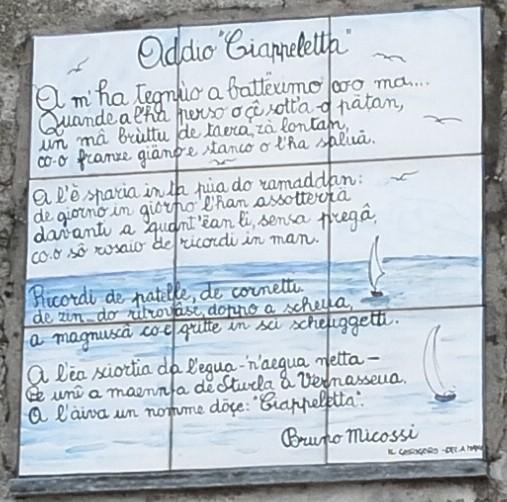 Oddio "Ciappeletta"
A m'ha tegnùo a battezimo coo ma...
Quande a l'ha perso o çê sott'a-o pâtan,
un mâ brùttu de taera, zà lontan,
co-o franze giano e stanco o l'ha saluä.
A l'è sparia in ta püa do ramaddan:
de giorno in giorno l'han assotterrä
davanti a quant'ëan lì, sensa pregâ,
co-o sò rosaio de ricordi in man.
Ricordi de patelle, de cornetti
de zin do ritrovâse, doppo a scheua,
a magnuscâ co-e gritte in sci scheuggetti.
A l'ëa sciortia da l'egua-'n'aegua netta-
Ce unî a maenn-a de Sturla a Vernasseua.
A l'àiva un nomme döçe: "Ciappeletta".
Bruno Micossi